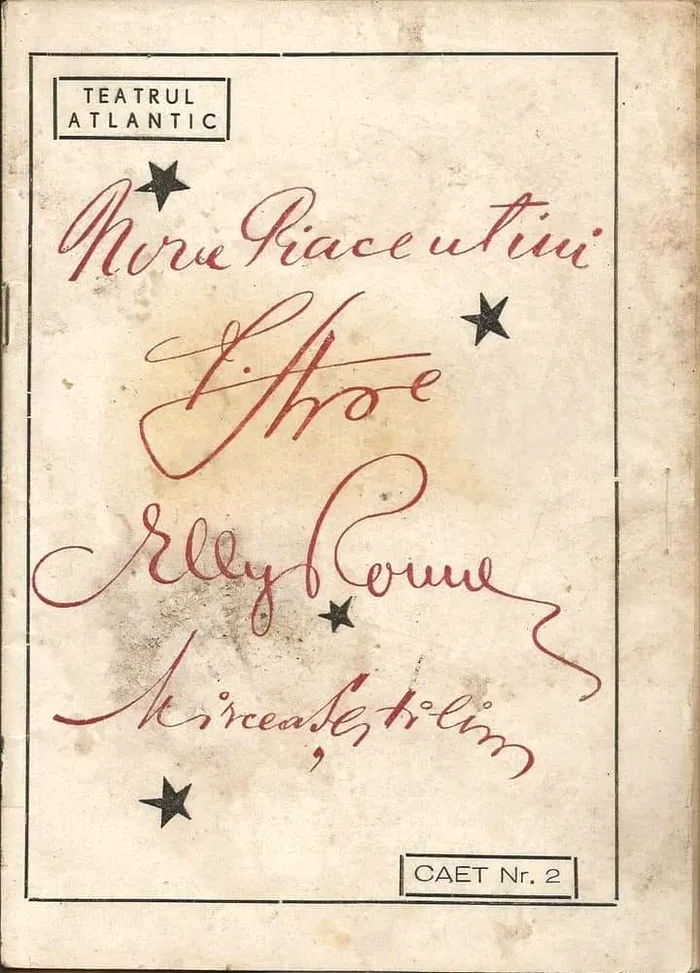 TEATRUL
ATLANTIC
Nora Piacentini
N. Stroe
Elly Roman
Mircea Șeptilici
CAET Nr. 2